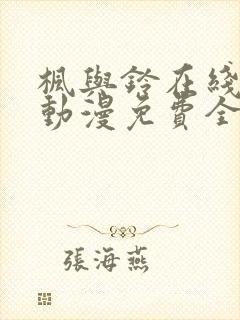 楓與鈴在綫
動漫免費全
張海燕